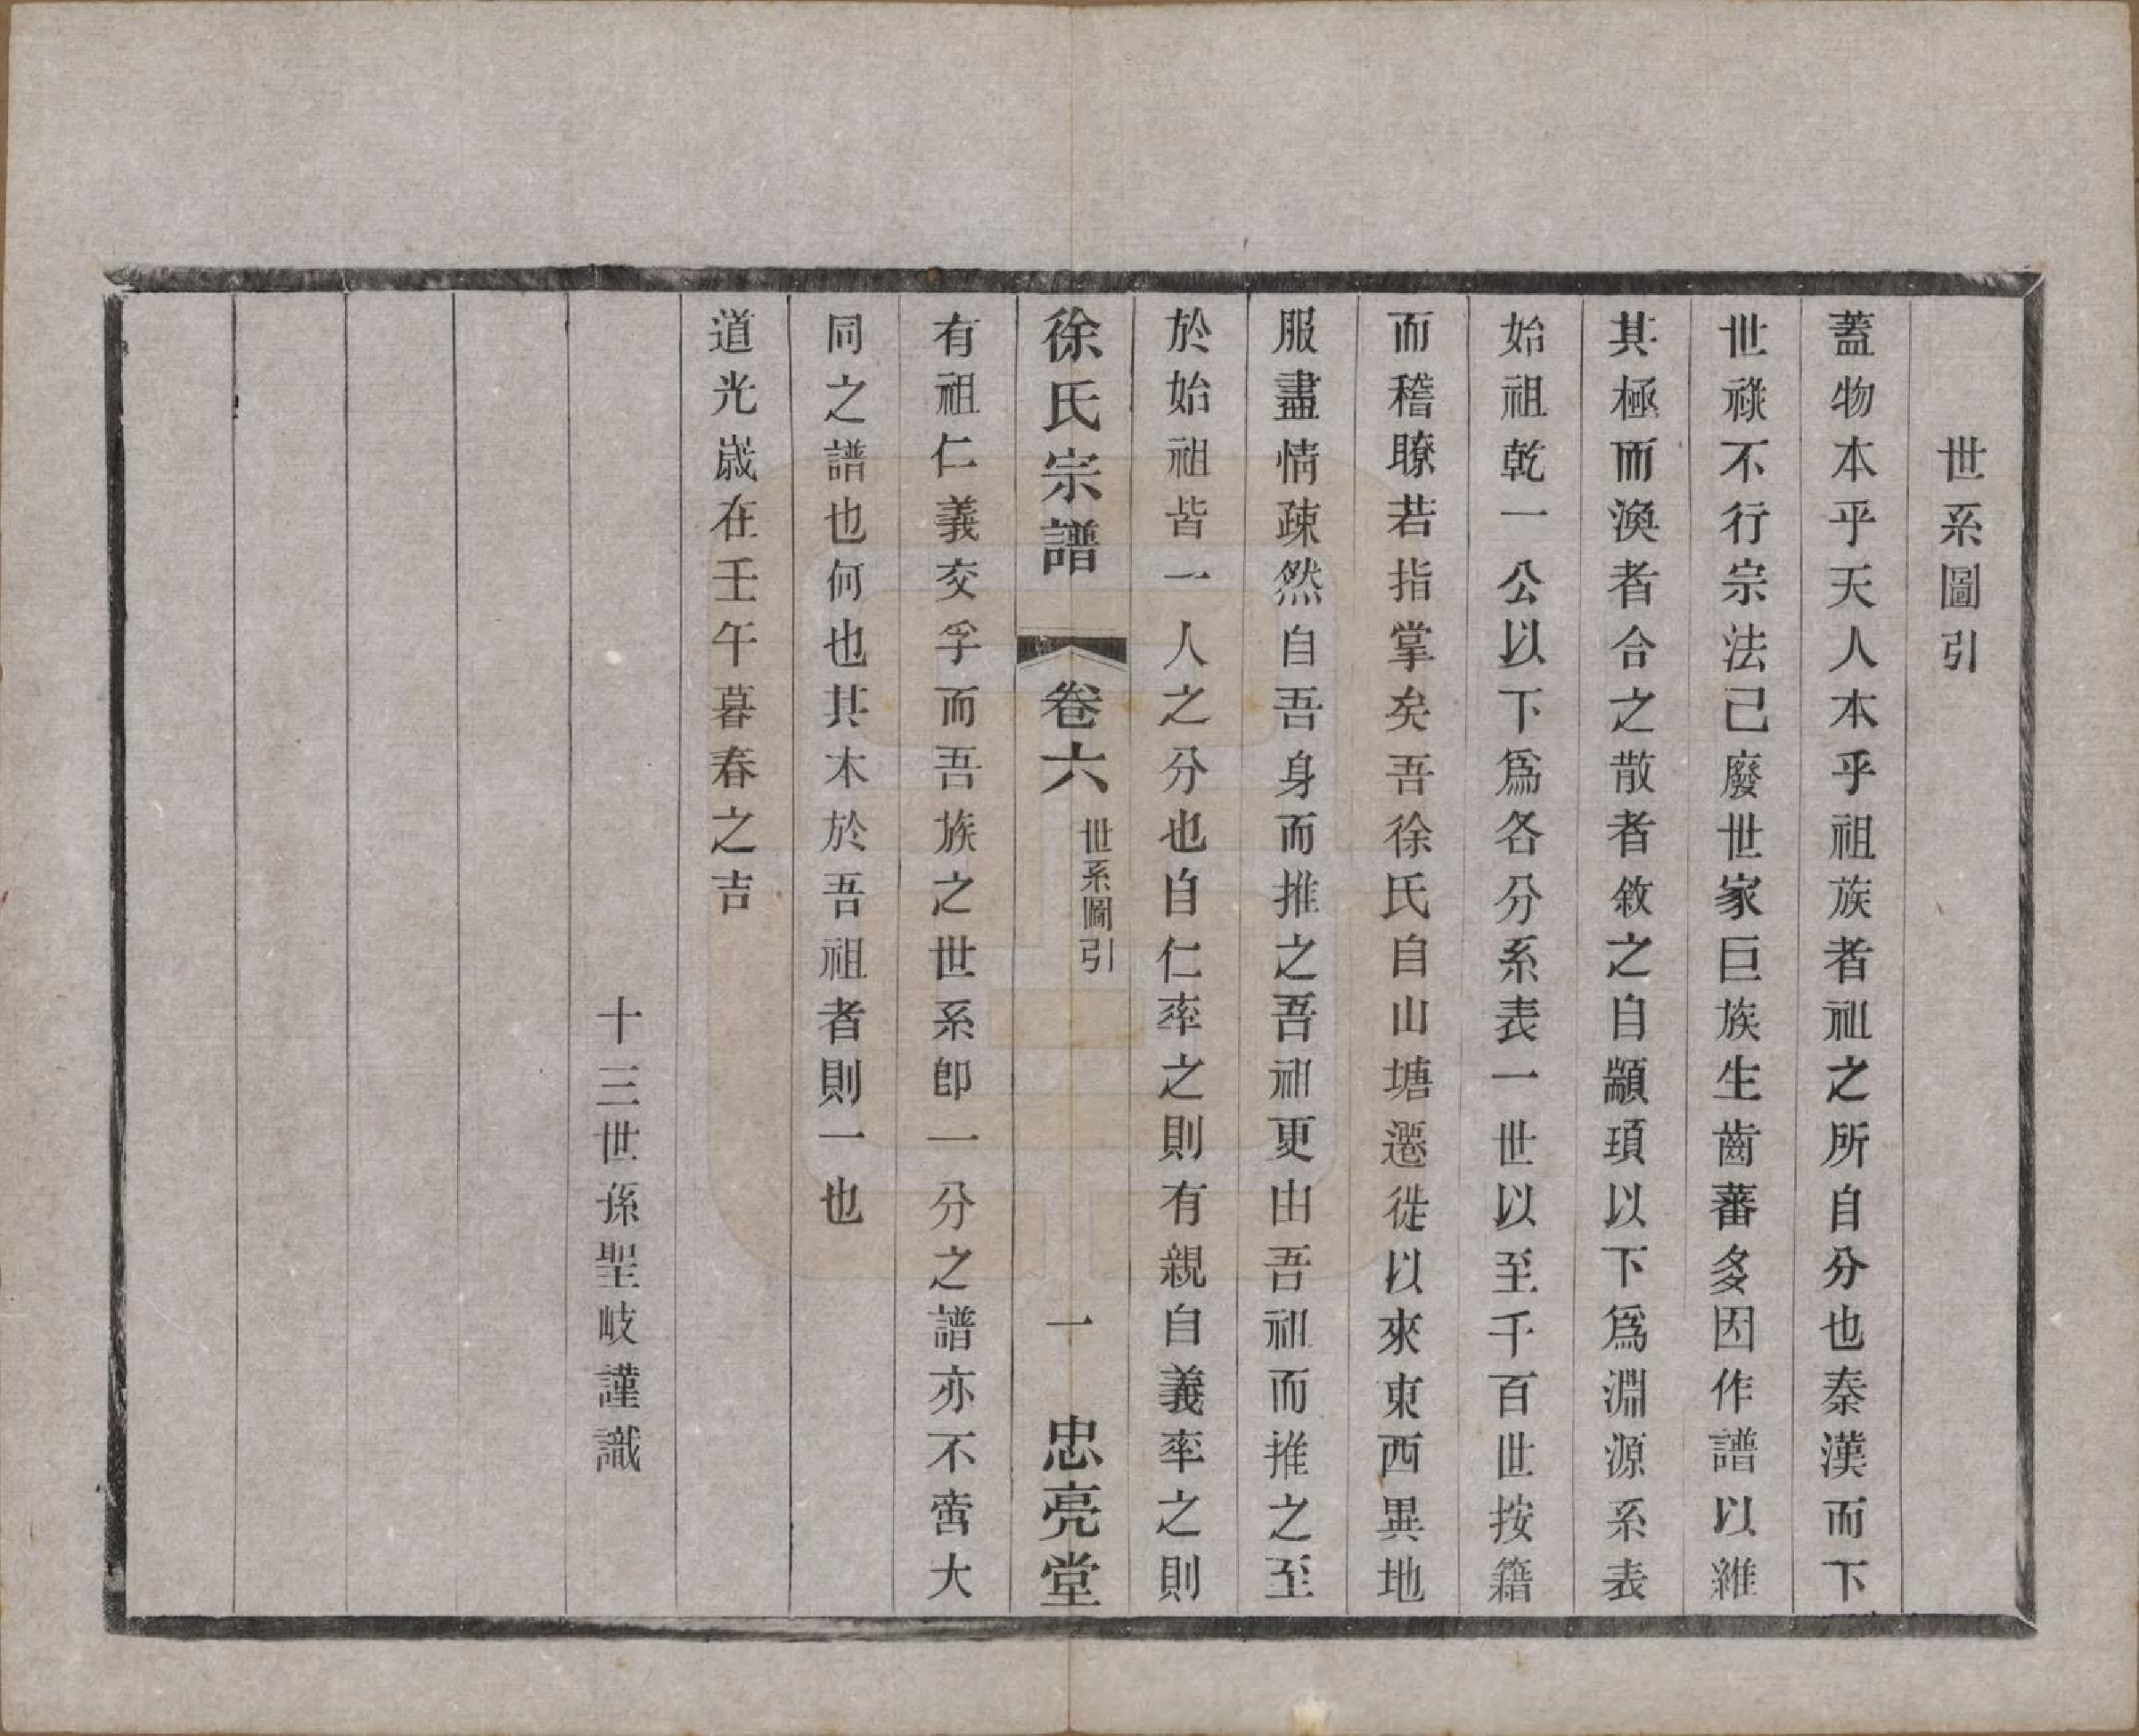 世系圖引
蓋物本乎天人本乎祖族者祖之所自分也秦漢而下
世祿不行宗法已廢世家巨族生齒蕃多因作譜以維
其極而渙者合之散者敘之自顓頊以下爲淵源系表
始祖乾一公以下爲各分系表一世以至千百世按籍
而稽瞭若指掌矣吾徐氏自山塘遷徙以來東西異地
服盡情疎然自吾身而推之吾祖更由吾祖而推之至
於始祖皆一人之分也自仁率之則有親自義率之則
徐氏宗譜 卷六 世系圖引 一 忠亮堂
有祖仁義交孚而吾族之世系卽一分之譜亦不啻大
同之譜也何也其木於吾祖者則一也
道光歲在壬午暮春之吉
十三世孫聖岐謹識